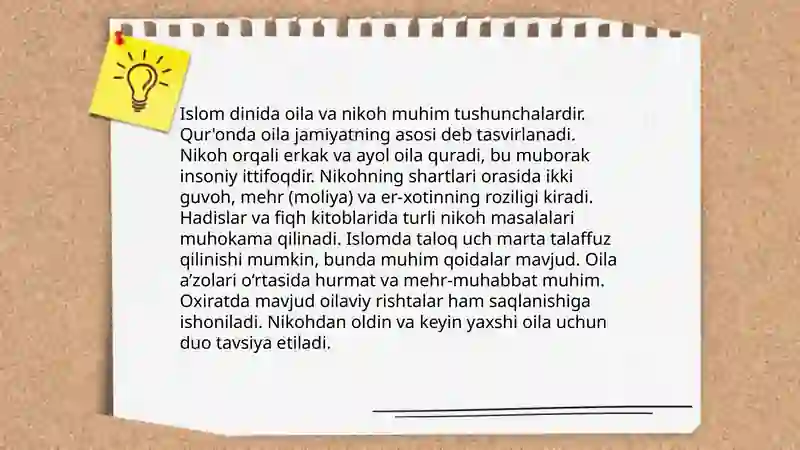 Islom dinida oila va nikoh muhim tushunchalardir.
Qur'onda oila jamiyatning asosi deb tasvirlanadi.
Nikoh orqali erkak va ayol oila quradi, bu muborak
insoniy ittifoqdir. Nikohning shartlari orasida ikki
guvoh, mehr (moliya) va er-xotinning roziligi kiradi.
Hadislar va fiqh kitoblarida turli nikoh masalalari
muhokama qilinadi. Islomda taloq uch marta talaffuz
qilinishi mumkin, bunda muhim qoidalar mavjud. Oila
a’zolari o‘rtasida hurmat va mehr-muhabbat muhim.
Oxiratda mavjud oilaviy rishtalar ham saqlanishiga
ishoniladi. Nikohdan oldin va keyin yaxshi oila uchun
duo tavsiya etiladi.